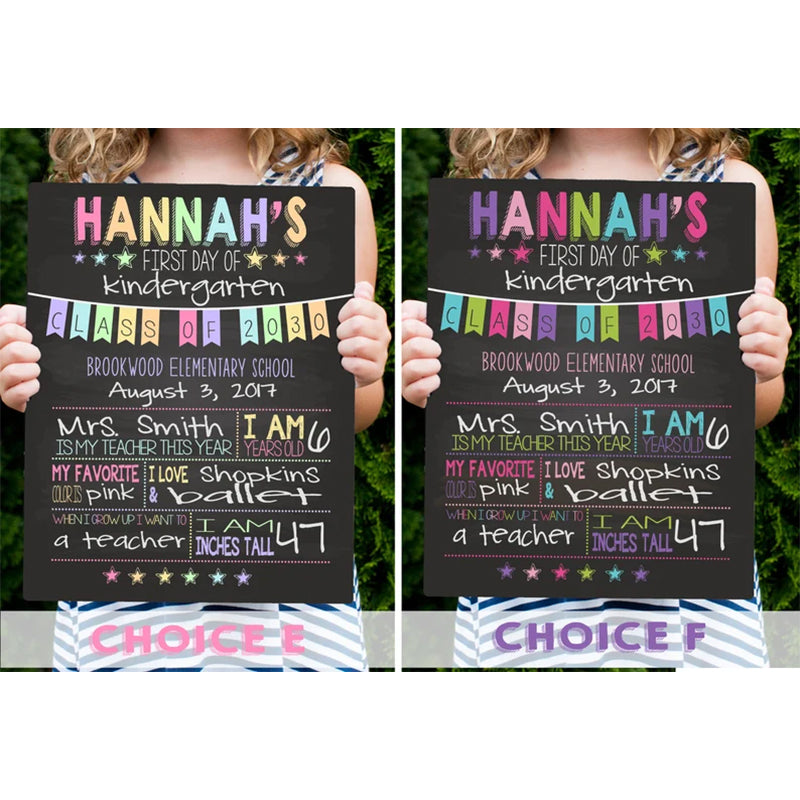 HANNAH'S
FIRST DAY OF
kindergarten
CLASS OF 2030
BROOKWOOD ELEMENTARY SCHOOL
August 3, 2017
Mrs. Smith
IS MY TEACHER THIS YEAR
I AM 6
YEARS OLD
MY FAVORITE
COLOR IS pink
I LOVE Shopkins
& ballet
WHEN I GROW UP I WANT TO
a teacher
I AM 47
INCHES TALL
CHOICE E
HANNAH'S
FIRST DAY OF
kindergarten
CLASS OF 2030
BROOKWOOD ELEMENTARY SCHOOL
August 3, 2017
Mrs. Smith
IS MY TEACHER THIS YEAR
I AM 6
YEARS OLD
MY FAVORITE
COLOR IS pink
I LOVE Shopkins
& ballet
WHEN I GROW UP I WANT TO
a teacher
I AM 47
INCHES TALL
CHOICE F